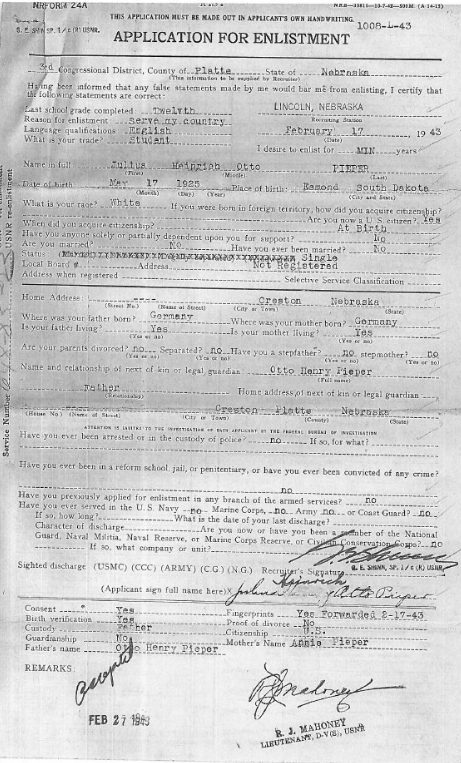 NRFORM 24A
THIS APPLICATION MUST BE MADE OUT IN APPLICANT'S OWN HANDWRITING.
1008-L-43
APPLICATION FOR ENLISTMENT
3rd Congressional District, County of Platte State of Nebraska
(This information to be supplied by Recruiter)
Having been informed that any false statements made by me would bar me from enlisting, I certify that
the following statements are correct:
Last school grade completed Twelvth LINCOLN, NEBRASKA
Reason for enlistment Serve my country Recruiting Station
Language qualifications English February 17, 1943
What is your trade? Student (Date)
I desire to enlist for MIN. years
Name in full Julius Heinrich Otto PIEPER
(First) (Middle) (Last)
Date of birth May 17 1925 Place of birth: Esmond South Dakota
(Month) (Day) (Year) (City and State)
What is your race? White If you were born in foreign territory, how did you acquire citizenship?
Are you now a U.S. citizen? Yes
When did you acquire citizenship? At Birth
Have you anyone solely or partially dependent upon you for support? No
Are you married? No Have you ever been married? No
Status Single
Local Board # Address Not Registered
Address when registered Selective Service Classification
Home Address ---- Creston Nebraska
(Street No.) (Name of Street) (City or Town) (State)
Where was your father born? Germany Where was your mother born? Germany
Is your father living? Yes Is your mother living? Yes
(Yes or no) (Yes or no)
Are your parents divorced? no Separated? no Have you a stepfather? no stepmother? no
(Yes or no) (Yes or no) (Yes or no)
Name and relationship of next of kin or legal guardian Otto Henry Pieper
(Full name)
Father Home address of next of kin or legal guardian
(Relationship)
Creston Platte Nebraska
(House No.) (Name of Street) (City or Town) (County) (State)
ATTENTION IS INVITED TO THE INVESTIGATION OF EACH APPLICANT BY THE FEDERAL BUREAU OF INVESTIGATION
Have you ever been arrested or in the custody of police? no If so, for what?
Have you ever been in a reform school jail, or penitentiary, or have you ever been convicted of any crime?
no
Have you previously applied for enlistment in any branch of the armed services? no
Have you ever served in the U.S. Navy no Marine Corps, no Army no or Coast Guard? no
If so, how long? What is the date of your last discharge?
Character of discharge Are you now or have you been a member of the National
Guard, Naval Militia, Naval Reserve, or Marine Corps Reserve, or Civilian Conservation Corps? no
If so, what company or unit?
Sighted discharge (USMC) (CCC) (ARMY) (C.G.) (N.G.) Recruiter's Signature
(Applicant sign full name here) Julius Heinrich Otto Pieper
Consent Yes Fingerprints Yes Forwarded 2-17-43
Birth verification Yes Proof of divorce No
Custody Father Citizenship U.S.
Guardianship No Mother's Name Annie Pieper
Father's name Otto Henry Pieper
REMARKS:
Accepted
FEB 27 1943
R J Mahoney
R. J. MAHONEY
LIEUTENANT, D-V(S), USNR
Service Number
USNR re-enlistment